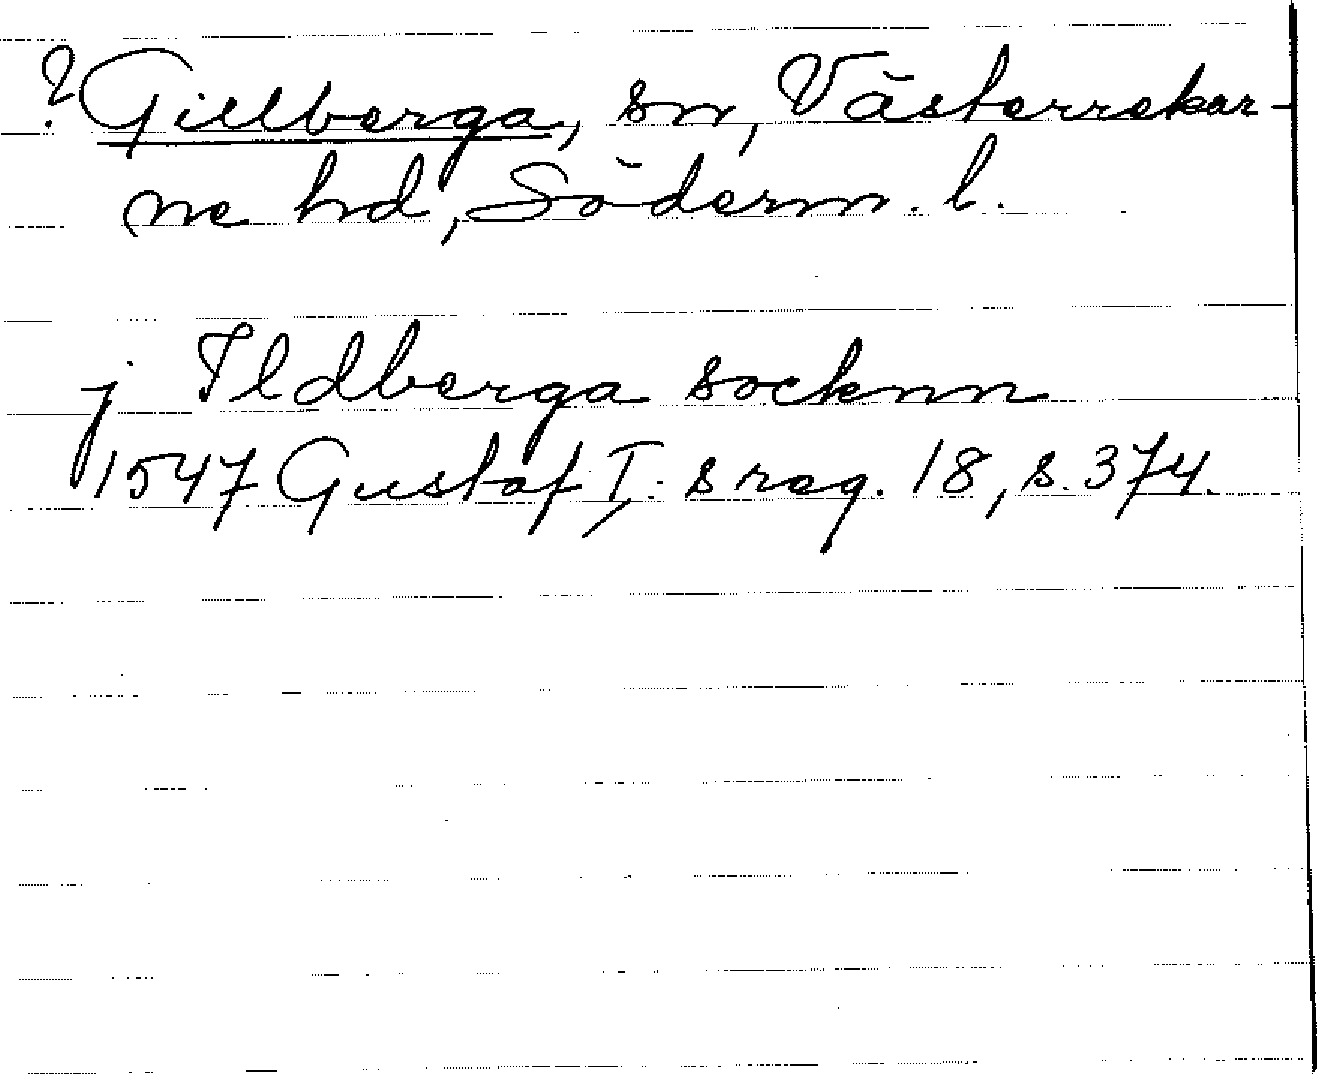 ? Gillberga, sn, Västerrekar-
ne hd, Söderm. l.
j Ildberga socknn
1547 Gustaf I:s reg. 18, s. 374.